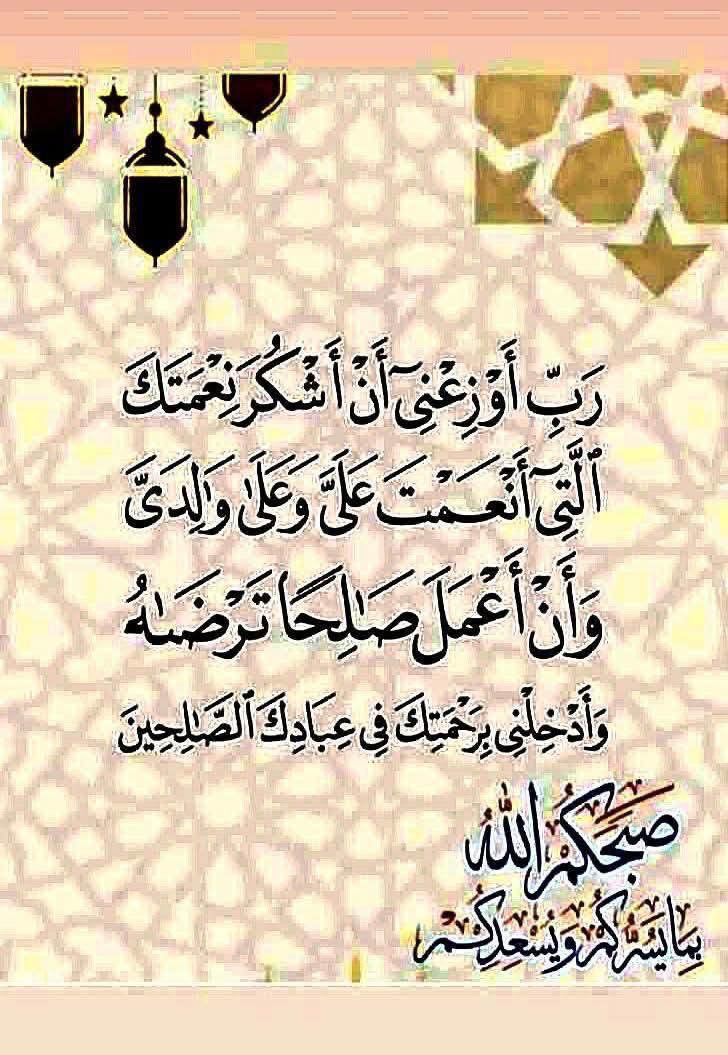 رَبِّ أَوْزِعْنِىٓ أَنْ أَشْكُرَ نِعْمَتَكَ
ٱلَّتِىٓ أَنْعَمْتَ عَلَىَّ وَعَلَىٰ وَٰلِدَىَّ
وَأَنْ أَعْمَلَ صَٰلِحًا تَرْضَىٰهُ
وَأَدْخِلْنِى بِرَحْمَتِكَ فِى عِبَادِكَ ٱلصَّٰلِحِينَ
صَبَّحَكُمُ اللهُ
بِمَا يَسُرُّكُمْ وَيُسْعِدُكُمْ